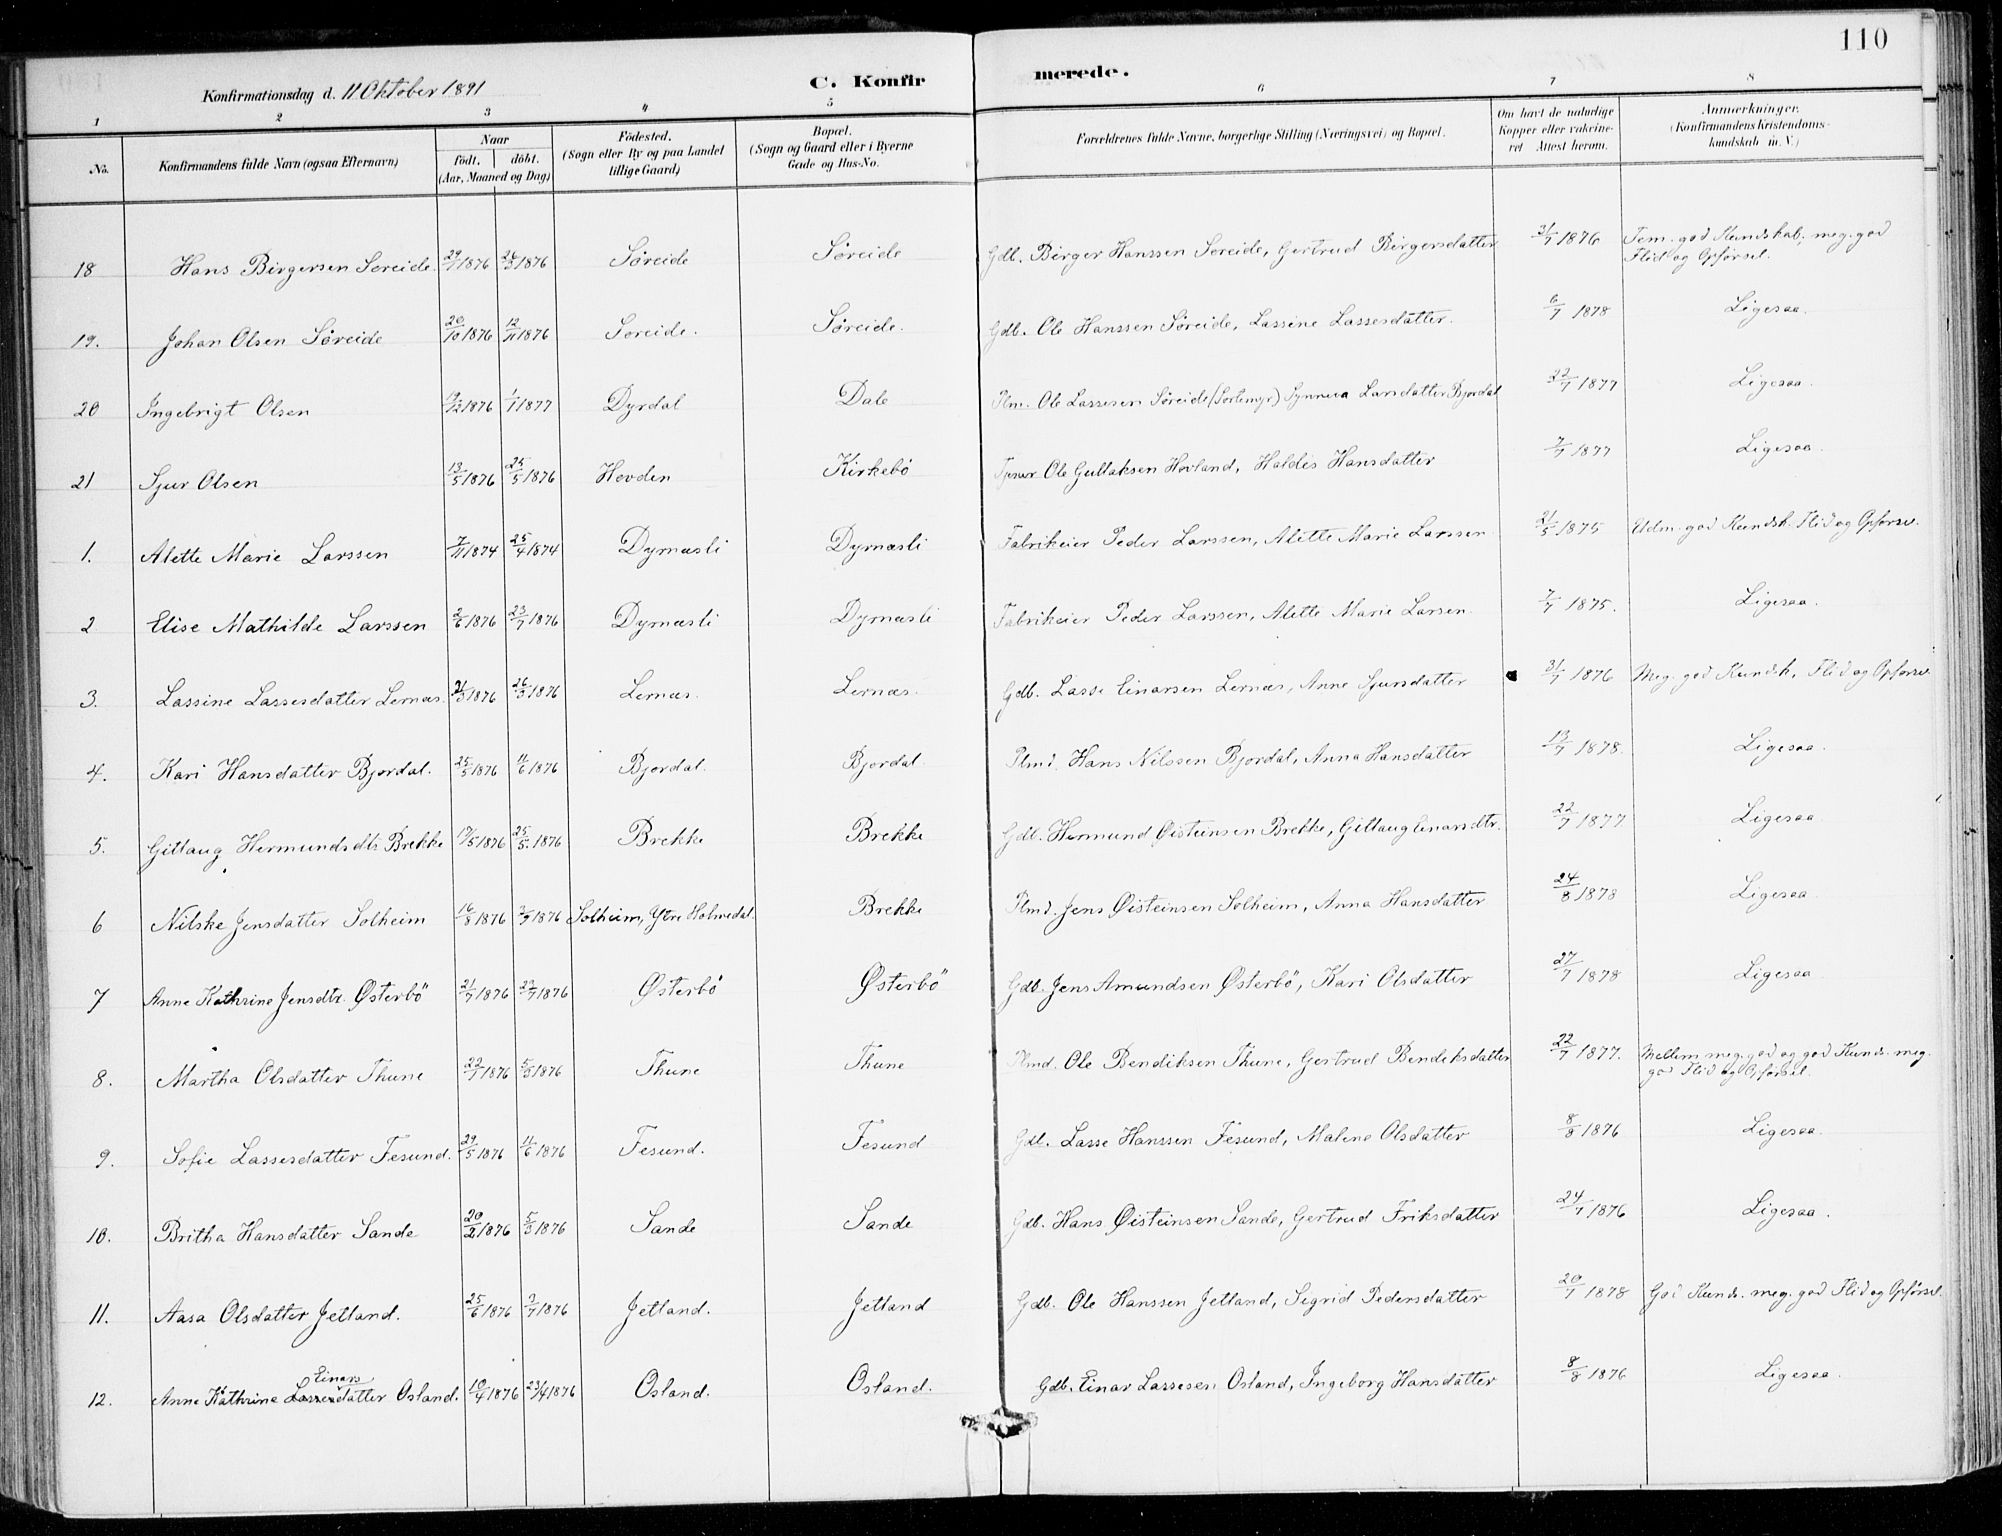 110
Konfirmationsdag d. 11 Oktober 1891
C. Konfirmerede.
1 2 3 4 5 6 7 8
No. Konfirmandens fulde Navn (ogsaa Efternavn) Naar födt. döbt. (Aar, Maaned og Dag) Födested. (Sogn eller By og paa Landet tillige Gaard) Bopæl. (Sogn og Gaard eller i Byerne Gade og Hus-No. Forældrenes fulde Navne, borgerlige Stilling (Næringsvei) og Bopæl. Om havt de naturlige Kopper eller vakcineret Attest herom. Anmærkninger. (Konfirmandens Kristendomskundskab m. V.)
18 Hans Birgersen Søreide 29/1 1876 26/3 1876 Söreide Söreide Gdb. Birger Hanssen Søreide, Gertrud Birgersdatter 31/7 1876 Tem. god Kundskab, meg. god Flid og Opførsel.
19. Johan Olsen Söreide 20/10 1876 12/11 1876 Soreide. Söreide. Gdb. Ole Hanssen Söreide, Lassine Lassesdatter. 6/7 1878 Ligesaa.
20 Ingebrigt Olsen /12 1876 1/1 1877 Dyrdal Dale Plm. Ole Lassesen Söreide (Sortemyr) Synneva Larsdatter Bjordal 22/7 1877 Ligesaa.
21 Sjur Olsen 13/5 1876 25/5 1876 Hovden Kirkebö Ole Gullaksen Hovland, Haldis Hansdatter 7/7 1877 Ligesaa.
1. Alette Marie Larssen 7/11 1874 25/4 1874 Dyrnæsli Dyrnæsli Fabrikeier Peder Larssen, Alette Marie Larssen 21/5 1875 Udm. god Kundsk. Flid og Opførsel.
2 Elise Mathilde Larssen 2/6 1876 23/7 1876 Dyrnæsli Dyrnæsli Fabrikeier Peder Larssen, Alette Marie Larsen. 7/7 1875. Ligesaa.
3. Lassine Lassesdatter Lernæs. /3 1876 26/3 1876 Lernæs. Lernæs. Gdb. Lasse Einarsen Lernæs, Anne Sjursdatter 31/7 1876 Meg. god Kundsk, Flid og Opførsel.
4. Kari Hansdatter Bjordal. 25/5 1876 11/6 1876 Bjordal. Bjordal. Plmd. Hans Nilssen Bjordal, Anna Hansdatter 13/7 1878. Ligesaa.
5. Gitlaug Hermundsdtr Brekke 17/5 1876 25/5. 1876 Brekke Brekke Gdb. Hermund Øisteinsen Brekke, Gitlaug Einarsdtr. 22/7 1877. Ligesaa.
6 Nilske Jensdatter Solheim 16/8 1876 3/9 1876 Solheim, Ytre Holmedal. Brekke Plmd. Jens Øisteinsen Solheim, Anna Hansdatter 24/8 1878 Ligesaa.
7 Anne Kathrine Jensdtr. Østerbö 21/7 1876 22/7 1876 Østerbö Østerbö Gdb. Jens Amundsen Østerbö, Kari Olsdatter 27/7 1878 Ligesaa.
8. Martha Olsdatter Thune 22/1 1876 5/3 1876 Thune Thune Plmd. Ole Bendiksen Thune, Gertrud Bendiksdatter 22/7 1877. Mellem meg. god og god Kunds. meg. god Flid og Opførsel.
9. Sofie Lassesdatter Fesund. 29/5 1876 11/6 1876 Fesund. Fesund Gdb. Lasse Hanssen Fesund, Malene Olsdatter 8/8 1876 Ligesaa.
10. Britha Hansdatter Sande 20/2 1876 5/3 1876 Sande Sande Gdb. Hans Øisteinsen Sande, Gertrud Friksdatter 24/7 1876 Ligesaa.
11. Aasa Olsdatter Jetland. 25/6 1876 2/7 1876 Jetland. Jetland Gdb. Ole Hanssen Jetland, Sigrid Pedersdatter 20/7 1878 God Kunds. meg. god Flid og Opførsel.
12. Anne Kathrine Einars Lassesdatter Osland. 10/4 1876 23/4 1876 Osland. Osland. Gdb. Einar Lassesen Osland, Ingeborg Hansdatter 8/8 1876 Ligesaa.